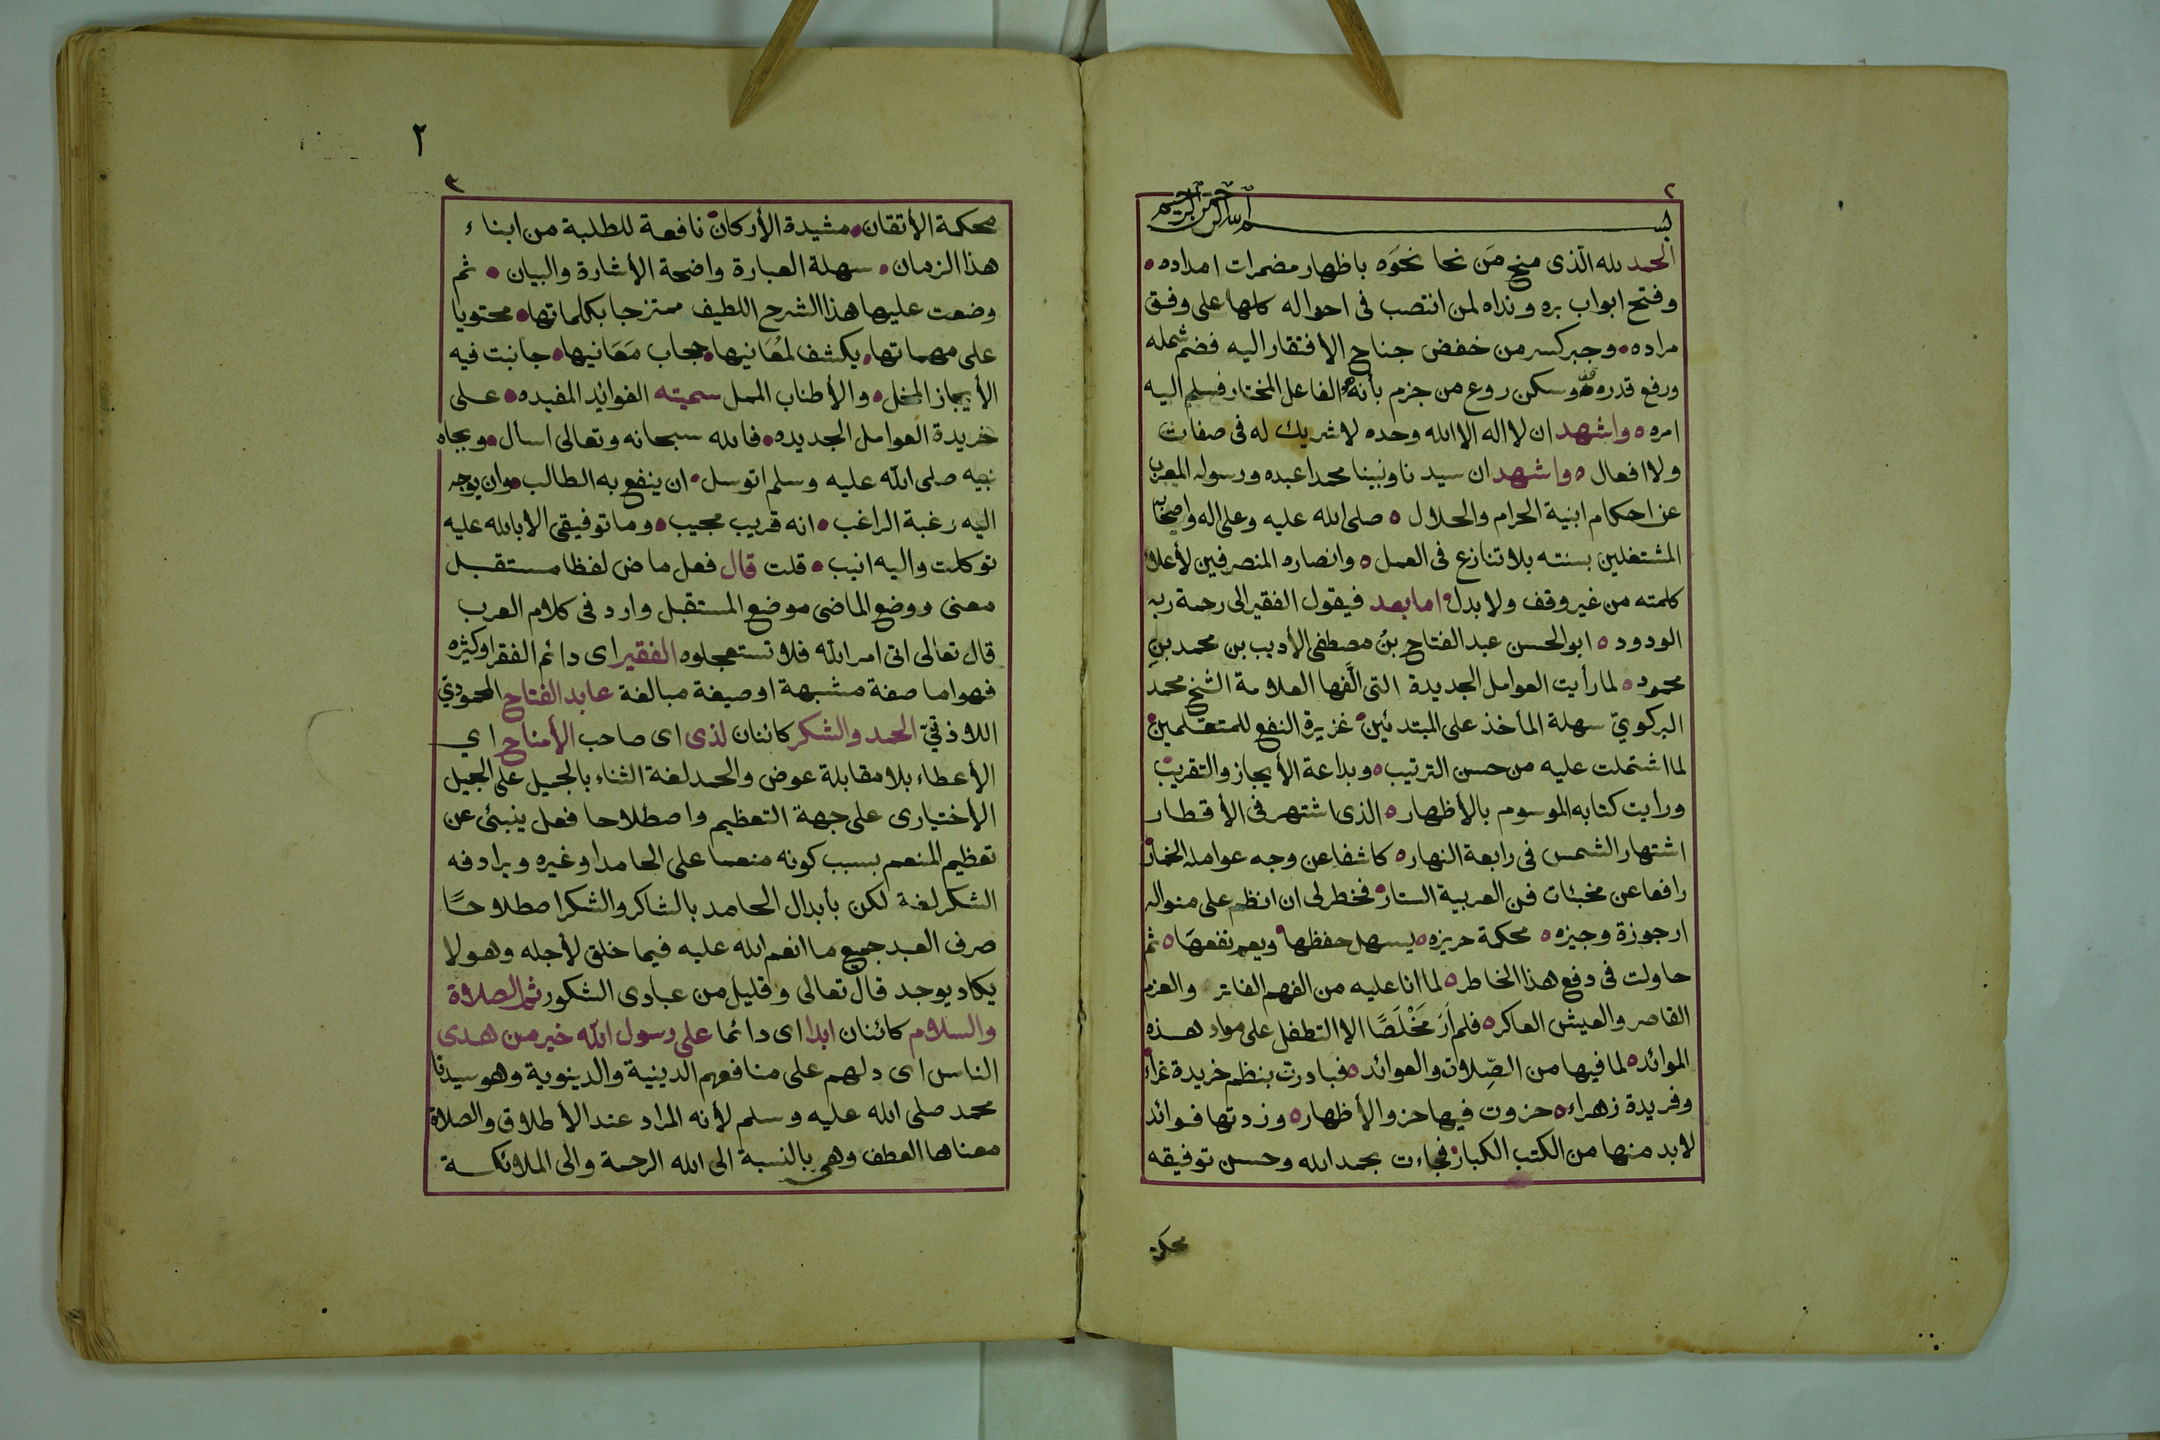 ٢
بسم الله الرحمن الرحيم
الحمد لله الّذى منح مَن نحا نَحوَه باظهار مضمرات امداده ه
وفتح ابواب بره ونداه لمن انتصب فى احواله كلها على وفق
مراده ه وجبر كسر من خفض جناح الأفتقار اليه فضم شمله
ورفع قدره ه وسكن روع من جزم بأنه الفاعل المختار فسلم اليه
امره ه واشهد ان لا اله الا الله وحده لا شريك له فى صفات
ولا افعال ه واشهد ان سيدنا ونبينا محمدا عبده ورسوله المعرب
عن احكام ابنية الحرام والحلال ه صلى الله عليه وعلى اله واصحابه
المشتغلين بسنته بلا تنازع فى العمل ه وانصاره المنصرفين لأعلاء
كلمته من غير وقف ولا بدل ه اما بعد فيقول الفقير الى رحمة ربه
الودود ه ابو الحسن عبد الفتاح بن مصطفى الأديب بن محمد بن
محمود ه لما رأيت العوامل الجديدة التى الّفها العلامة الشيخ محمد
البركويّ سهلة المأخذ على المبتدئين ه غزيرة النفع للمتعلمين ه
لما اشتملت عليه من حسن الترتيب ه وبداعة الأيجاز والتقريب ه
ورأيت كتابه الموسوم بالأظهار ه الذى اشتهر فى الأقطار
اشتهار الشمس فى رابعة النهار ه كاشفا عن وجه عوامله الخمار
رافعا عن مخبئات فن العربية الستار ه فخطر لى ان انظم على منواله
ارجوزة وجيزه ه محكمة حريزه ه يسهل حفظها ه ويعم نفعها ه ثم
حاولت فى دفع هذا الخاطر ه لما انا عليه من الفهم الفاتر والعزم
القاصر والعيش العاكر ه فلم اَرَ مَخْلَصًا الا التطفل على مواد هذه
الموائد ه لما فيها من الصِّلات والعوائد ه فبادرت بنظم خريدة غراء
وفريدة زهراء ه حزوت فيها حزو الأظهار ه وزدتها فوائد
لا بد منها من الكتب الكبار ه فجاءت بحمد الله وحسن توفيقه
محكمة
٢
٣
محكمة الأتقان ه مشيدة الأركان ه نافعة للطلبة من ابناء
هذا الزمان ه سهلة العبارة واضحة الأشارة والبيان ه ثم
وضعت عليها هذا الشرح اللطيف ممتزجا بكلماتها ه محتويا
على مهماتها ه يكشف لمُعَانيها ه حجاب مَعَانيها ه جانبت فيه
الأيجاز المخل ه والأطناب الممل سميته الفوائد المفيده ه على
خريدة العوامل الجديده ه فالله سبحانه وتعالى اسأل ه وبجاه
نبيه صلى الله عليه وسلم اتوسل ه ان ينفع به الطالب ه وان يوجه
اليه رغبة الراغب ه انه قريب مجيب ه وما توفيقى الا بالله عليه
توكلت واليه انيب ه قلت قال فعل ماض لفظا مستقبل
معنى ووضع الماضى موضع المستقبل وارد فى كلام العرب
قال تعالى اتى امر الله فلا تستعجلوه الفقير اى دائم الفقر او كثيره
فهو اما صفة مشبهة او صيغة مبالغة عابد الفتاح المحموديّ
اللاذقيّ الحمد والشكر كائنان لذى اى صاحب الأمناح اي
الأعطاء بلا مقابلة عوض والحمد لغة الثناء بالجميل على الجميل
الأختيارى على جهة التعظيم واصطلاحا فعل ينبئ عن
تعظيم المنعم بسبب كونه منعما على الحامد او غيره ويرادفه
الشكر لغة لكن بأبدال الحامد بالشاكر والشكر اصطلاحًا
صرف العبد جميع ما انعم الله عليه فيما خلق لأجله وهو لا
يكاد يوجد قال تعالى وقليل من عبادى الشكور ثم الصلاة
والسلام كائنان ابدا اى دائما على رسول الله خير من هدى
الناس اى دلهم على منافعهم الدينية والدينوية وهو سيدنا
محمد صلى الله عليه وسلم لأنه المراد عند الأطلاق والصلاة
معناها العطف وهى بالنسبة الى الله الرحمة والى الملائكة